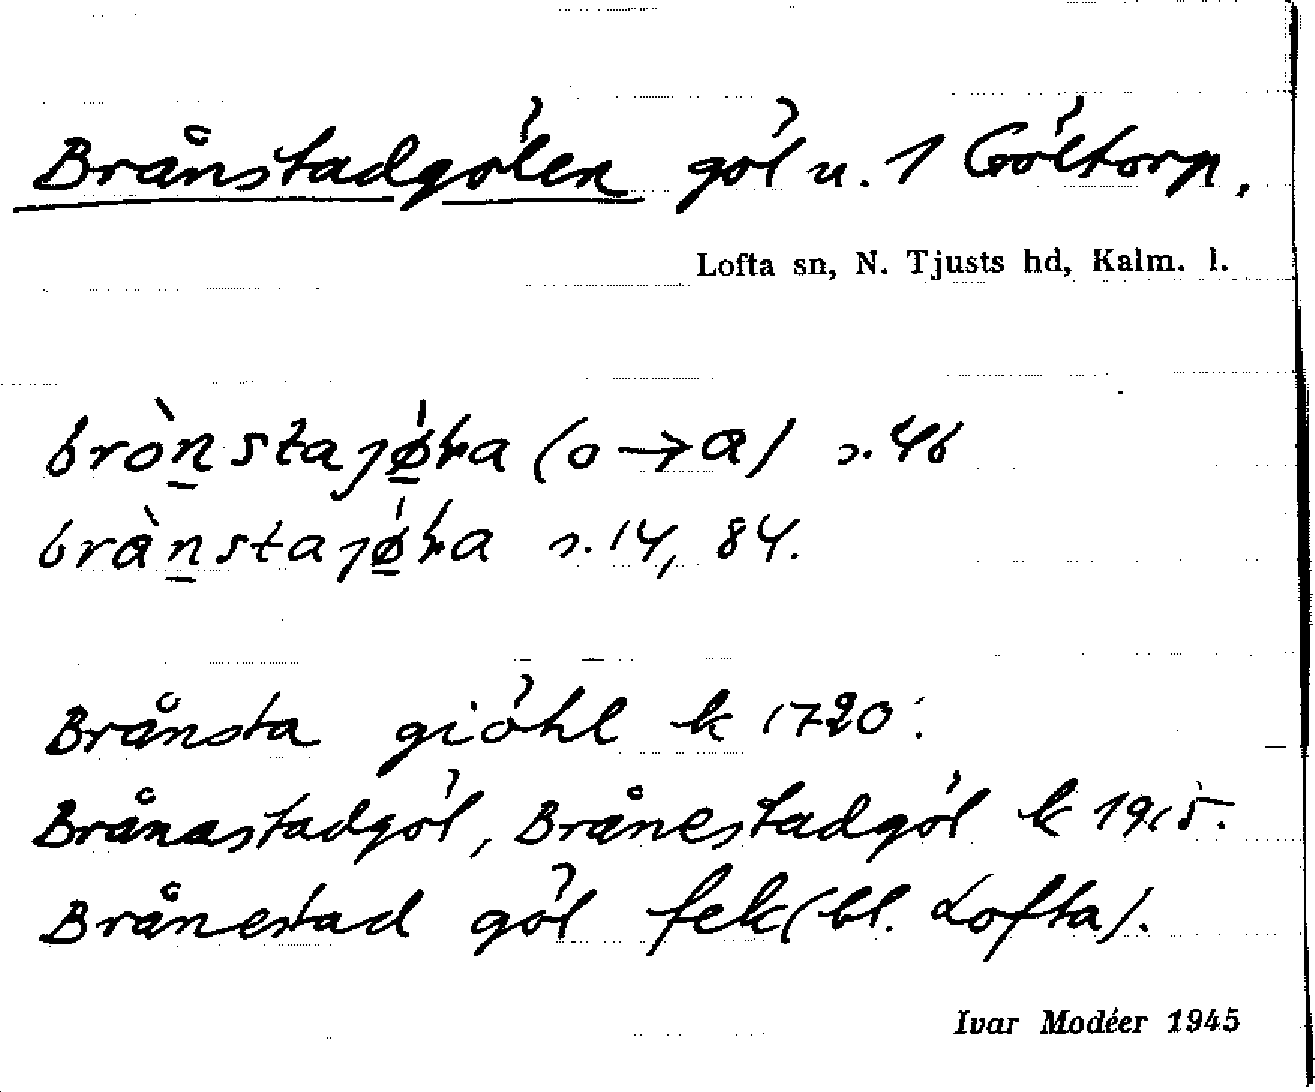 Brånstadgölen göl u. 1 Göltorp.
Lofta sn, N. Tjusts hd, Kalm. l.
bròn̲stajǿ̲ɫa (o → a) s. 46
bràn̲stajǿ̲ɫa s. 14, 84.
Brånsta giöhl k 1720.
Brånastadgöl, Brånestadgöl k 1915.
Brånestad göl fek (bl. Lofta).
Ivar Modéer 1945